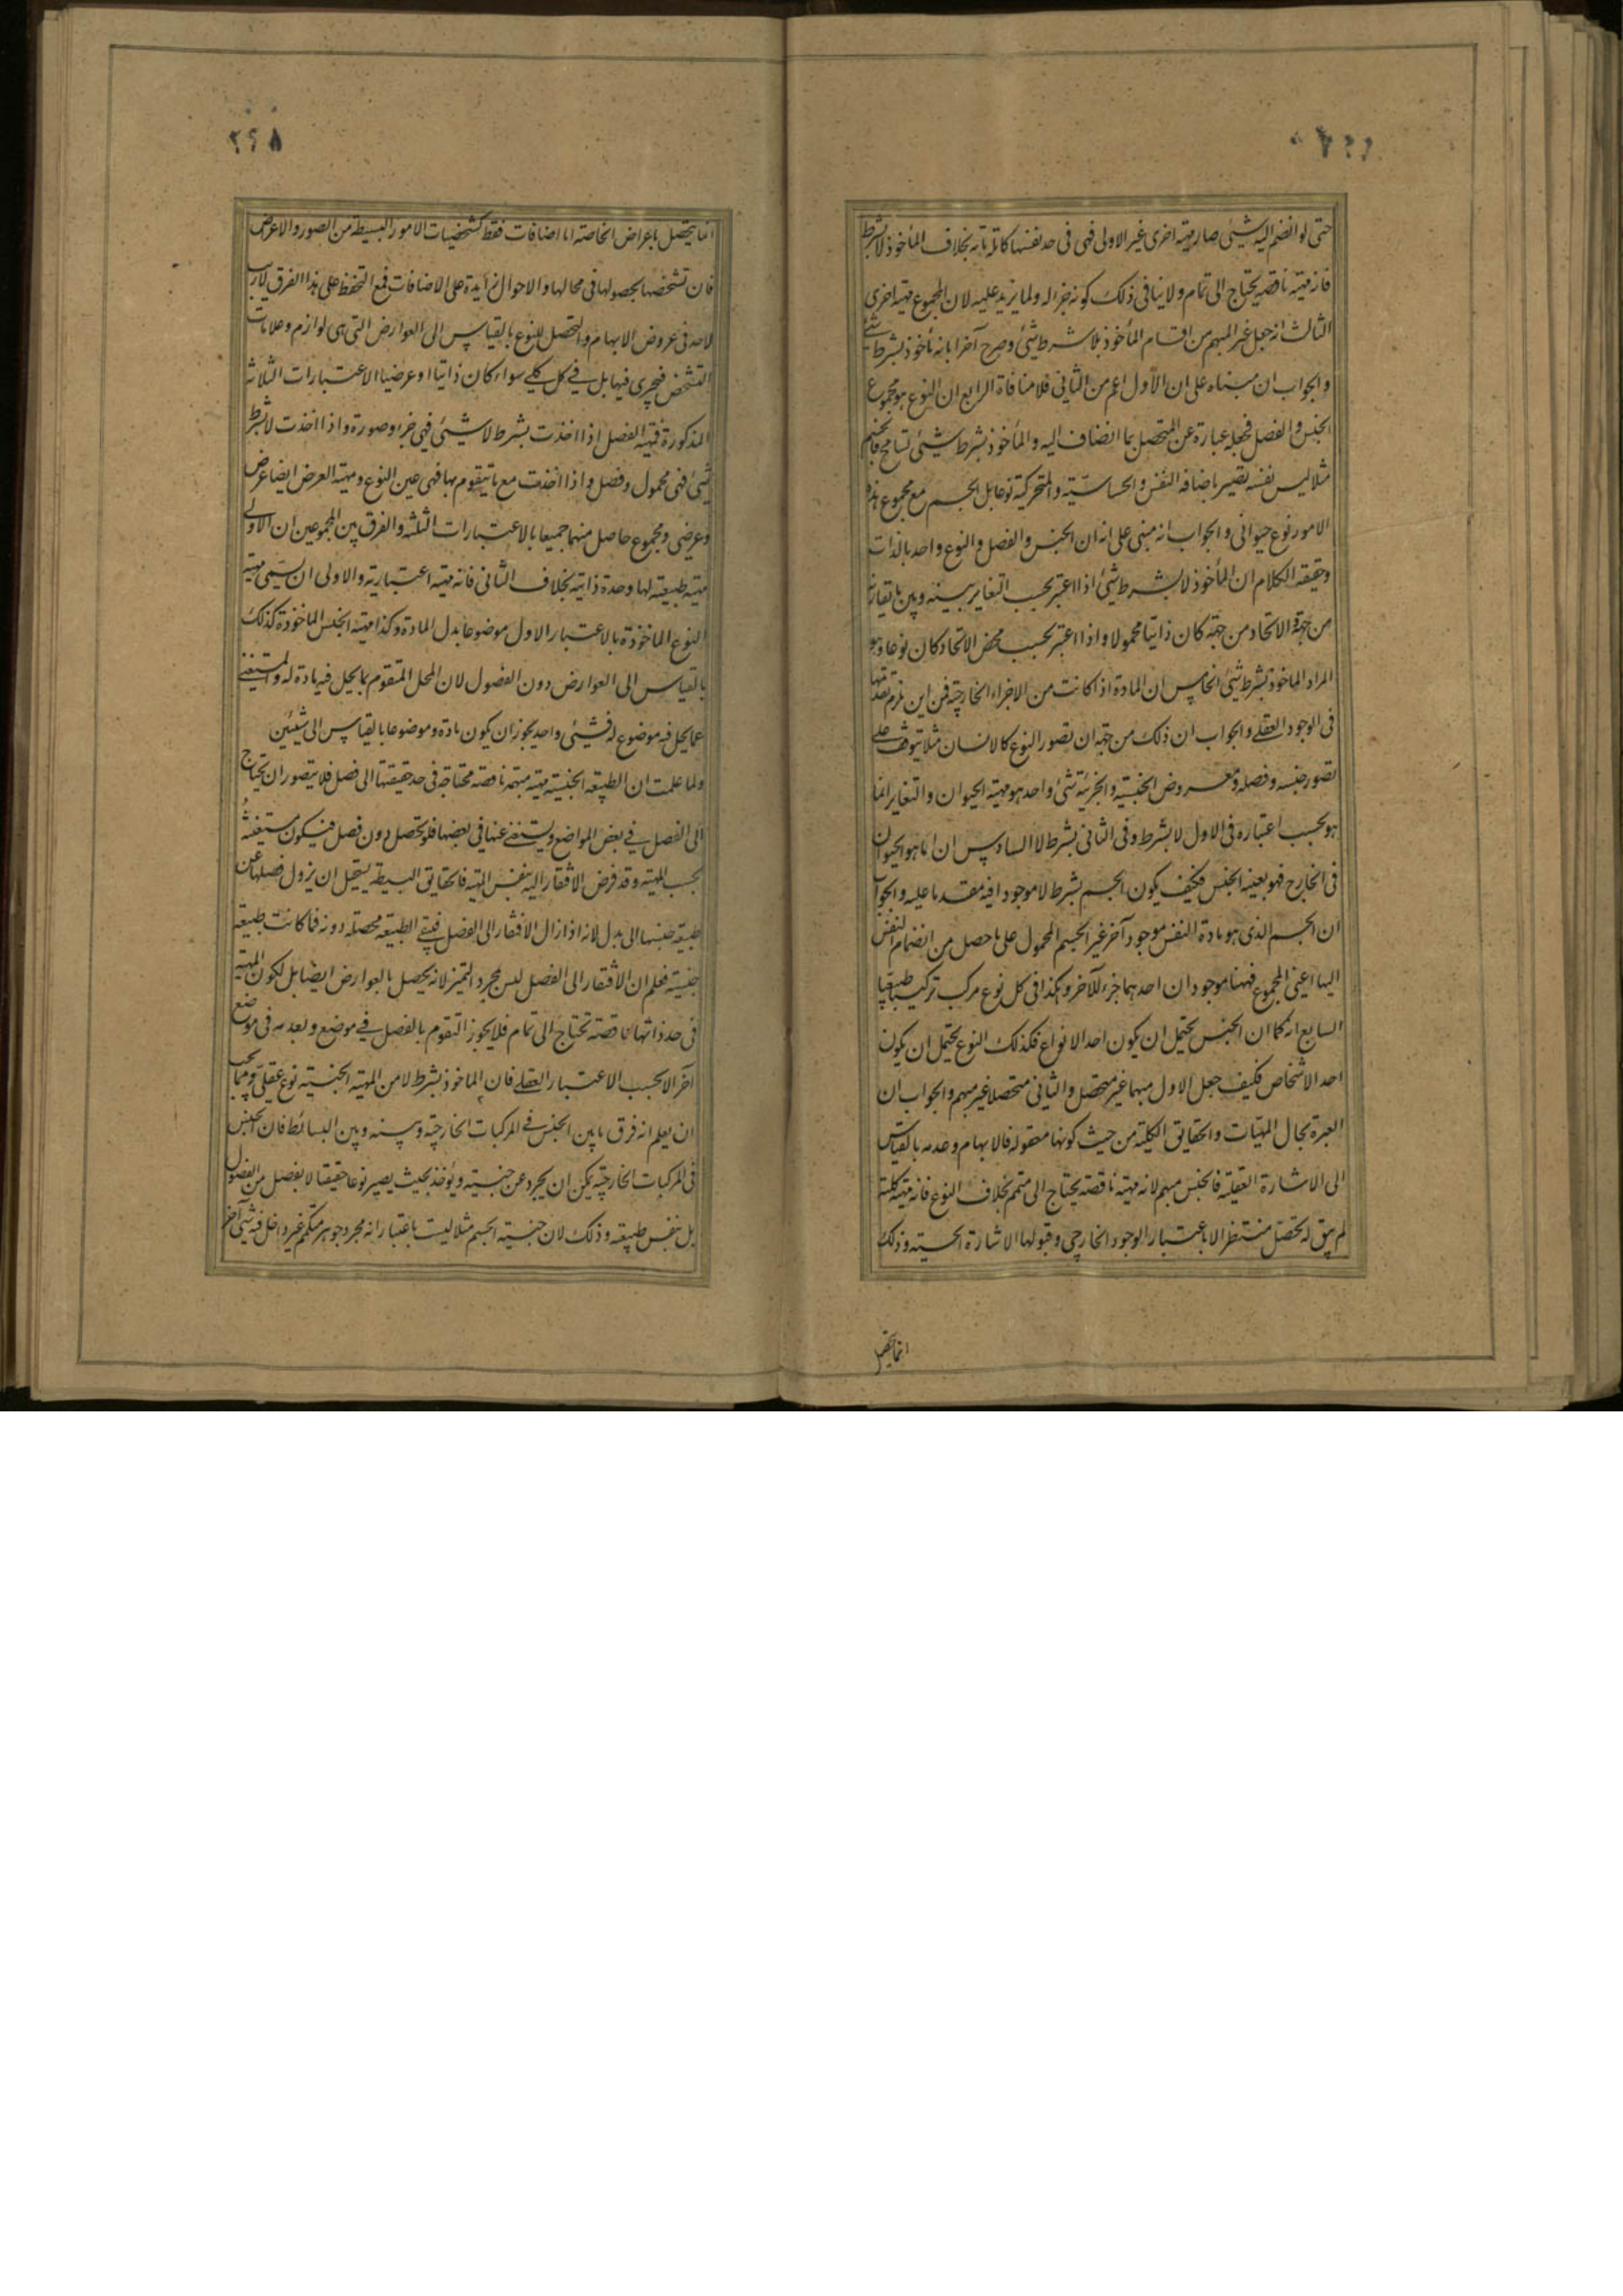 حتى لو انضم اليه شيئ صار مهية اخرى غير الاولى فهى فى حد نفسها كاملة تامة بخلاف المأخوذ لا بشرط
فانه مهية ناقصة يحتاج الى تمام ولا ينافى ذلك كونه جزء له ولما يزيد عليه لان المجموع مهية اخرى
الثالث انه جعل غير المبهم من اقسام المأخوذ بلا شرط شيئ وصرح آخرا بانه مأخوذ بشرط شيئ
والجواب ان مبناه على ان الأول اعم من الثانى فلا منافاة الرابع ان النوع هو مجموع
الجنس والفصل فجعله عبارة عن المتحصل بما انضاف اليه والمأخوذ بشرط شيئى تسامح فالجسم
مثلا ليس نفسه يصير باضافة النفس والحساسية والمتحركية نوعا بل الجسم مع مجموع هذه
الامور نوع حيوانى والجواب انه مبنى على انه ان الجنس والفصل والنوع واحد بالذات
وحقيقة الكلام ان المأخوذ لا بشرط شيئ اذا اعتبر بحسب التغاير بينه وبين ما يقارنه
من جهة الاتحاد من جهة كان ذاتيا محمولا واذا اعتبر بحسب محض الاتحاد كان نوعا وهو
المراد الماخوذ بشرط شيئ الخامس ان المادة اذا كانت من الاجزاء الخارجية فمن اين لزم تقدمها
فى الوجود العقلى والجواب ان ذلك من جهة ان تصور النوع كالانسان مثلا يتوقف على
تصور جنسه وفصله ومعروض الجنسية والجزئية شئ واحد هو مهية الحيوان والتغاير انما
هو بحسب اعتباره فى الاول لا بشرط وفى الثانى بشرط لا السادس ان ما هو الحيوان
فى الخارج فهو بعينه الجنس فكيف يكون الجسم بشرط لا موجودا فيه مقدما عليه والجواب
ان الجسم الذى هو مادة النفس موجود آخر غير الجسم المحمول على ما حصل من انضمام النفس
اليها اعنى المجموع فههنا موجودان احدهما جزء للآخر وهكذا فى كل نوع مركب تركيبا طبيعيا
السابع انه كما ان الجنس يحتمل ان يكون احد الانواع فكذلك النوع يحتمل ان يكون
احد الاشخاص فكيف جعل الاول مبهما غير متحصل والثانى متحصلا غير مبهم والجواب ان
العبرة بحال المهيات والحقايق الكلية من حيث كونها معقولة فالابهام وعدمه بالقياس
الى الاشارة العقلية فالجنس مبهم لانه مهية ناقصة يحتاج الى متمم بخلاف النوع فانه مهية كلية
لم يبق له تحصل منتظر الا باعتبار الوجود الخارجى وقبولها الاشارة الحسية وذلك
انما يتحصل
٢٤٨
انما يتحصل باعراض الخاصة اما اضافات فقط كتشخصيات الامور البسيطة من الصور والاعراض
فان تشخصها بحصولها فى محالها والاحوال زايدة على الاضافات فمع التحفظ على هذا الفرق لا ريب
لاحد فى عروض الابهام والتحصل للنوع بالقياس الى العوارض التى هى لوازم وعلامات
التشخص فيجرى فيها بل فى كل كلى سواء كان ذاتيا او عرضيا الاعتبارات الثلاثة
المذكورة فمهية الفصل اذا اخذت بشرط لا شيئى فهى جزء وصورة واذا اخذت لا بشرط
شيئ فهى محمول وفصل واذا اخذت مع ما يتقوم بها فهى عين النوع ومهية العرض ايضا عرض
وعرضى ومجموع حاصل منهما جميعا بالاعتبارات الثلثة والفرق بين المجموعين ان الاولى
مهية طبيعية لها وحدة ذاتية بخلاف الثانى فانه مهية اعتبارية والاولى ان يسمى مهية
النوع الماخوذة بالاعتبار الاول موضوعا بدل المادة وكذا مهية الجنس الماخوذة كذلك
بالقياس الى العوارض دون الفصول لان المحل المتقوم بما يحل فيه مادة له والمستغنى
عما يحل فيه موضوع له فشيئى واحد يجوز ان يكون مادة وموضوعا بالقياس الى شيئين
ولما علمت ان الطبيعة الجنسية مهية مبهمة ناقصة محتاجة فى حد حقيقتها الى فصل فلا يتصور ان يحتاج
الى الفصل فى بعض المواضع ويستغنى عنها فى بعضها فلو تحصل دون فصل فيكون مستغنية
بحسب المهية وقد فرض الافتقار اليه بنفس المهية فالحقايق البسيطة يستحيل ان يزول فصلها عن
طبيعة جنسها الى بدل لانه اذا زال الافتقار الى الفصل فيبقى الطبيعة محصلة دونه فما كانت طبيعة
جنسية فعلم ان الافتقار الى الفصل ليس بمجرد التميز لانه يحصل بالعوارض ايضا بل لكون المهية
فى حد ذاتها ناقصة تحتاج الى تمام فلا يجوز التقوم بالفصل فى موضع وبعدمه فى موضع
آخر الا بحسب الاعتبار العقلى فان الماخوذ بشرط لا من المهية الجنسية نوع عقلى ومما يجب
ان يعلم انه فرق ما بين الجنس فى المركبات الخارجية وبينه وبين البسائط فان الجنس
فى المركبات الخارجية يمكن ان يجرد عن جنسيته ويؤخذ بحيث يصير نوعا حقيقيا لا بفصل من الفصول
بل بنفس طبيعته وذلك لان جنسية الجسم مثلا ليست باعتبار انه مجرد جوهر متكمم غير داخل فيه شيئ آخر